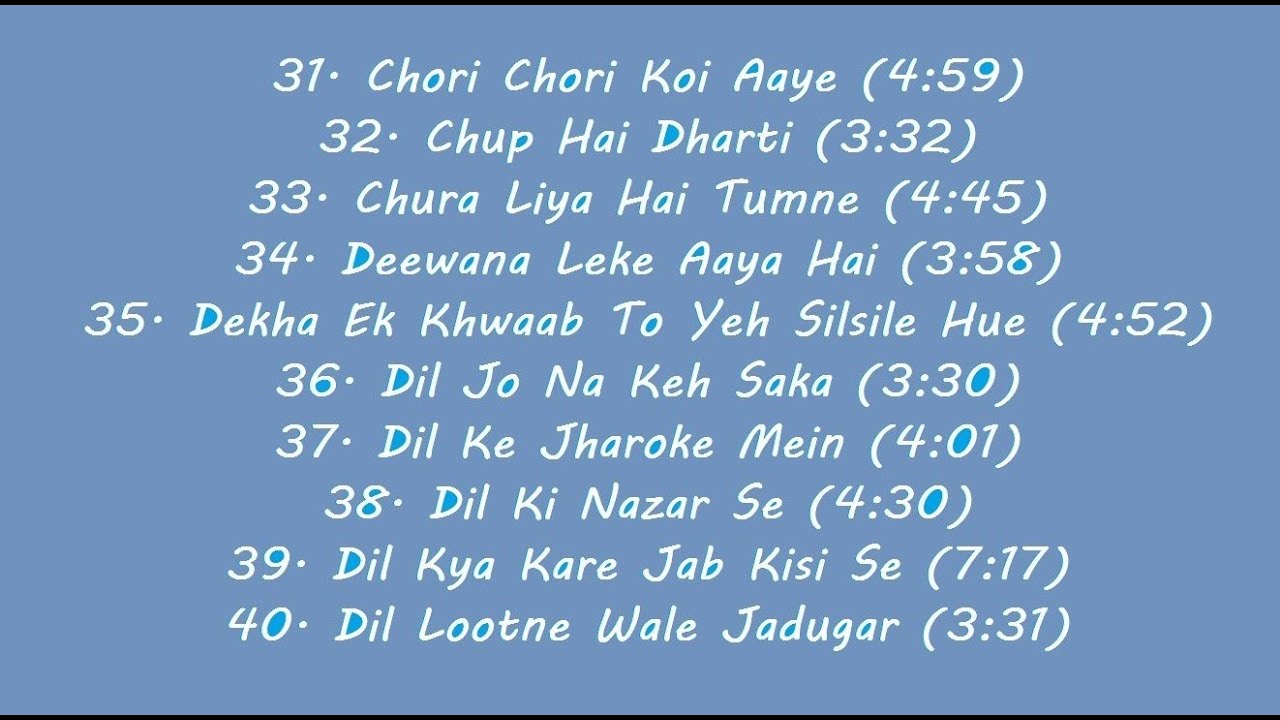 31. Chori Chori Koi Aaye (4:59)
32. Chup Hai Dharti (3:32)
33. Chura Liya Hai Tumne (4:45)
34. Deewana Leke Aaya Hai (3:58)
35. Dekha Ek Khwaab To Yeh Silsile Hue (4:52)
36. Dil Jo Na Keh Saka (3:30)
37. Dil Ke Jharoke Mein (4:01)
38. Dil Ki Nazar Se (4:30)
39. Dil Kya Kare Jab Kisi Se (7:17)
40. Dil Lootne Wale Jadugar (3:31)